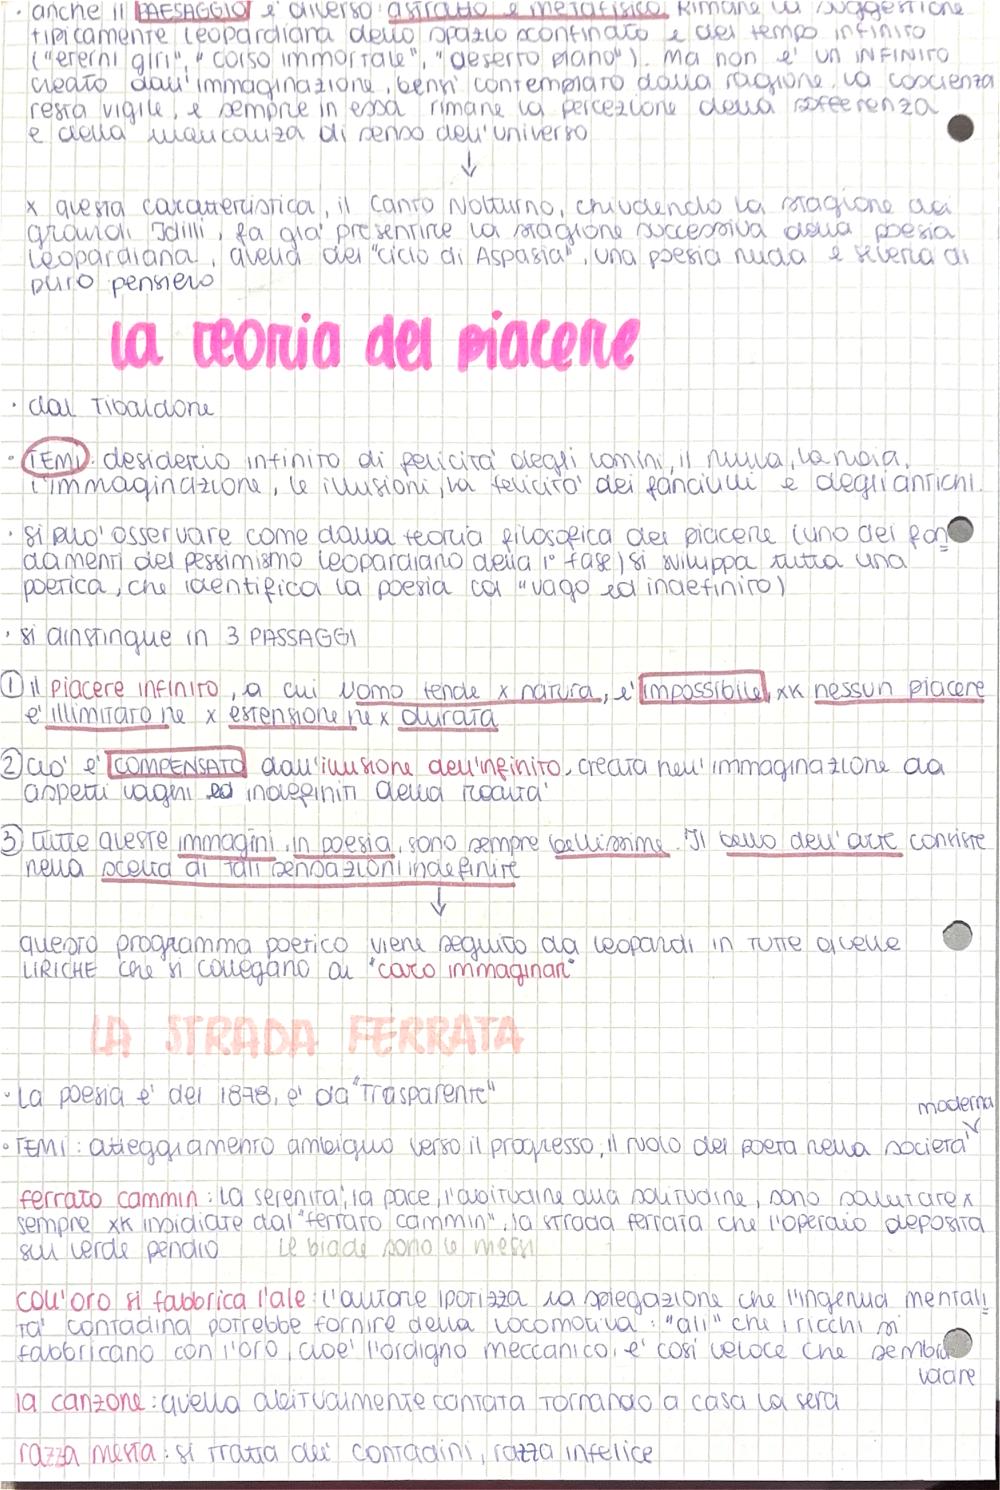 · anche il PAESAGGIO è diverso: astratto e metafisico. Rimane la suggestione
tipicamente leopardiana dello spazio sconfinato e del tempo infinito
("eterni giri", "corso immortale", "deserto piano"). Ma non e' un INFINITO
creato dall'immaginazione, bensì contemplato dalla ragione. La coscienza
resta vigile, e sempre in essa rimane la percezione della sofferenza
e della mancanza di senso dell'universo
↓
x questa caratteristica, il Canto Notturno, chiudendo la stagione dei
grandi Idilli, fa già presentire la stagione successiva della poesia
leopardiana, quella del "ciclo di Aspasia", una poesia nuda e severa di
puro pensiero
la teoria del piacere
· dal Zibaldone
· TEMI: desiderio infinito di felicità degli uomini, il nulla, la noia,
l'immaginazione, le illusioni, la felicità dei fanciulli e degli antichi.
· si può osservare come dalla teoria filosofica del piacere (uno dei fon=
damenti del pessimismo leopardiano della 1° fase) si sviluppa tutta una
poetica, che identifica la poesia col "vago ed indefinito)
· si dinstingue in 3 PASSAGGI
① il piacere infinito, a cui uomo tende x natura, e' impossibile, xk nessun piacere
e' illimitato ne x estensione ne x durata
② ciò e' COMPENSATO dall'illusione dell'infinito, creata nell'immaginazione da
aspetti vaghi ed indefiniti della realtà
③ tutte queste immagini, in poesia, sono sempre bellissime. Il bello dell'arte consiste
nella scelta di tali sensazioni indefinite
↓
questo programma poetico viene seguito da Leopardi in tutte quelle
LIRICHE che si collegano al "caro immaginar"
LA STRADA FERRATA
· La poesia e' del 1878, e' da "Trasparente"
moderna
· TEMI: atteggiamento ambiguo verso il progresso, il ruolo del poeta nella società
ferrato cammin: la serenità, la pace, l'abitudine alla solitudine, sono salutare x
sempre xk insidiate dal "ferrato cammin", la strada ferrata che l'operaio deposita
sul verde pendio le biade sono le messi
coll'oro si fabbrica l'ale: l'autore ipotizza la spiegazione che l'ingenua mentali=
tà contadina potrebbe fornire della locomotiva: "ali" che i ricchi si
fabbricano con l'oro, cioe' l'ordigno meccanico, e' così veloce che sembra
volare
la canzone: quella abitualmente cantata tornando a casa la sera
razza mesta: si tratta dei contadini, razza infelice